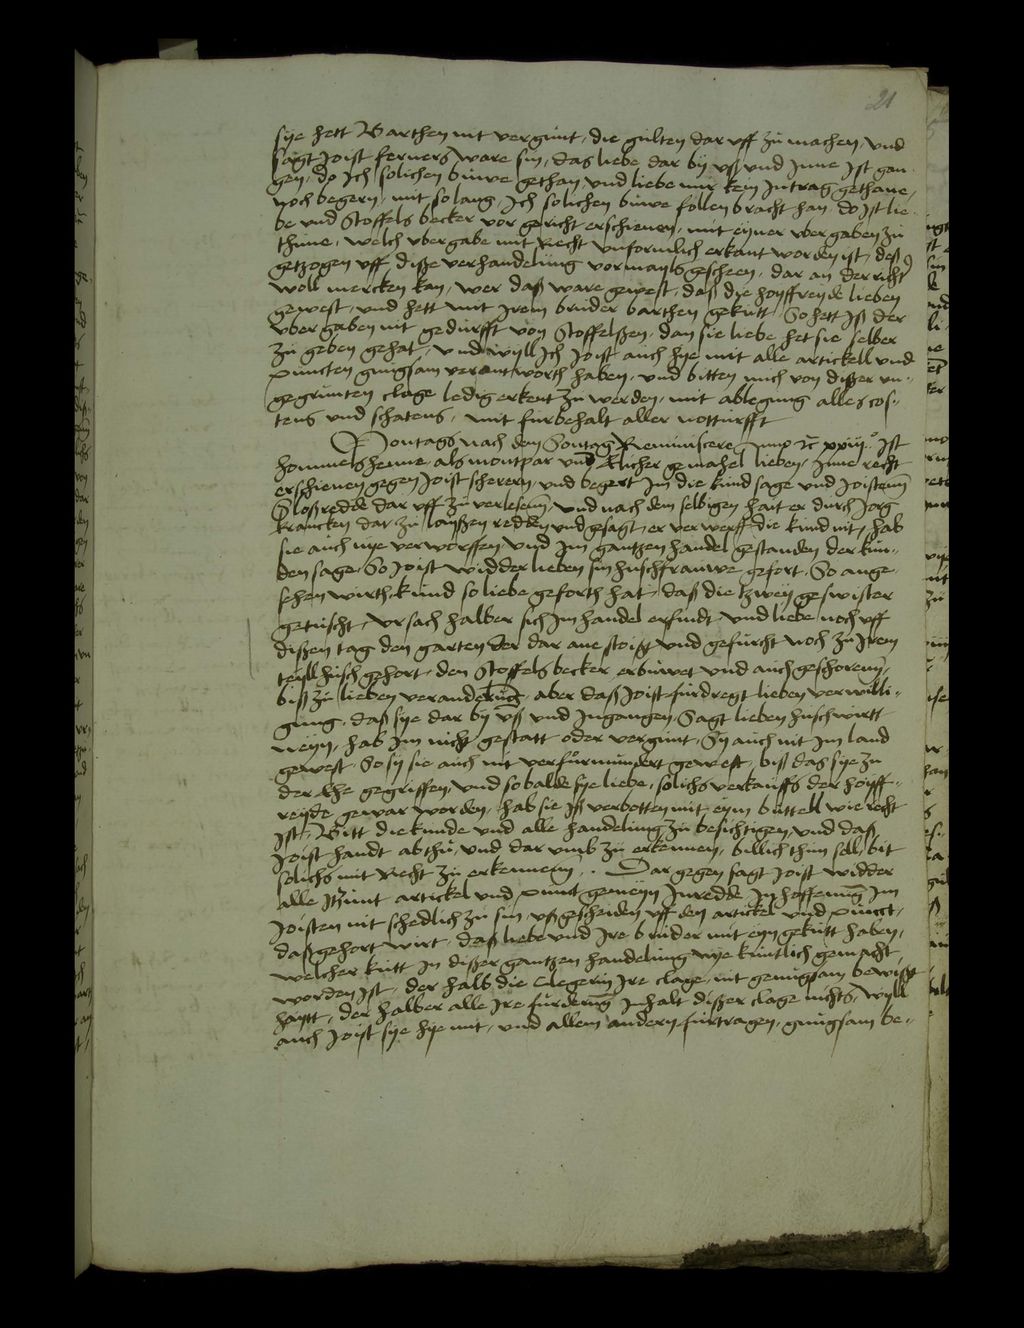 21
sye hett Barthen nit vergunt, die gulten dar uff zu machen, und
sagt Joist ferners ware sin, das liebe dar by uß und Inne Ist gan-
gen, do Ich solichen buwe gethan, und liebe mir kein Intrag gethane,
noch begern, mit so lang, Ich solichen buwe follenbracht han, do Ist lie-
be und Stoffels becker vor gericht erschienen, mit eyner ubergaben zu
thune, welch ubergabe mit Recht unformlich erkant worden ist, deß
getzogen uff disße verhandelung vormayls gescheen, dar an der richter
woll mercken kan, wer daß ware gewest, daß die hoyffreyde lieben
gewest, und hett mit Irem bruder barthen gekutt, So hett Iß der
ubergaben nit gedurfft von Stoffelßen, dan sie liebe het sie selber
zu geben gehat, und wyll Ich Joist auch hye mit alle artickell und
puncten gnugsam verantworth haben, und bitten mich von disßer un-
gegrunten clage ledig erkent zu werden, mit ablegung alles cos-
tens und schatens, mit furbehalt aller notturfft
Montags nach dem Sontag Reminiscere Anno etc xxiij Ist
hommelshenne, als montpar und Elicher gemahel lieben, Inne recht
erschienen gegen Joist scherern, und begert Im die kundsage und Joisten
Sloßredde dar uff zu verlesenn, und nach dem selbigen hait er durch Jorg
krancken dar zu laußen redden und gesagt, er verwerff die kund nit, hab
sie auch nye verworffen und Im gantzen handel gestanden der kun-
den sage, So Joist widder lieben sin huschfrauwe gefort, So ange-
sehen wirth, kund so liebe geforth hat, daß die zwey geswister
getuscht, ursach halber sich Im handel erfindt, und liebe noch uff
dißen tag den garten der dar ane stoist und gefurcht noch zu Irem
teyll husch gehort, den Stoffels becker erbuwet und auch geschorenn,
biß zu lieben veranderung, aber daß Joist furdregt lieben verwilli-
gung, daß sye dar by uß und Ingangen, Sagt lieben huschwirtt
neyn, hab Im nicht gestatt oder vergunt, Sy auch nit Im land
gewest, So sy sie auch nit verfurmundert gewest, biß das sye zu
der Ehe gegriffen, und so balde sye liebe, solichs verkauffs der hoyff-
reyde gewar worden, hab sie Iß verbotten mit eym buttell wie recht
Ist, Bitt die kunde und alle handelung zu besichtigen, und daß
Joist handt ab thu, und dar umb zu erkennen, billich thun sell, bit
solichs mit Recht zu erkennenn.. Dar gegen sagt Joist widder
alle Itzunt artickel und punct gemeyn Inredde In hoffenung Im
Joisten nit schedlich zu sin, ußgescheiden uff den artickel und punct,
daß gehort wirt, daß liebe und Ire bruder mit eyn gekutt haben,
welcher kutt In disßer gantzen handelung nye kuntlich gemacht
worden Ist, der halb die clegerin Ire clage, nit genugsam bewißt
haytt, der halber alle Ire furderung Inhalt disßer clage nichts, wyll
auch Joist sye hye mit, und allem andern furtragen, gnugsam be-